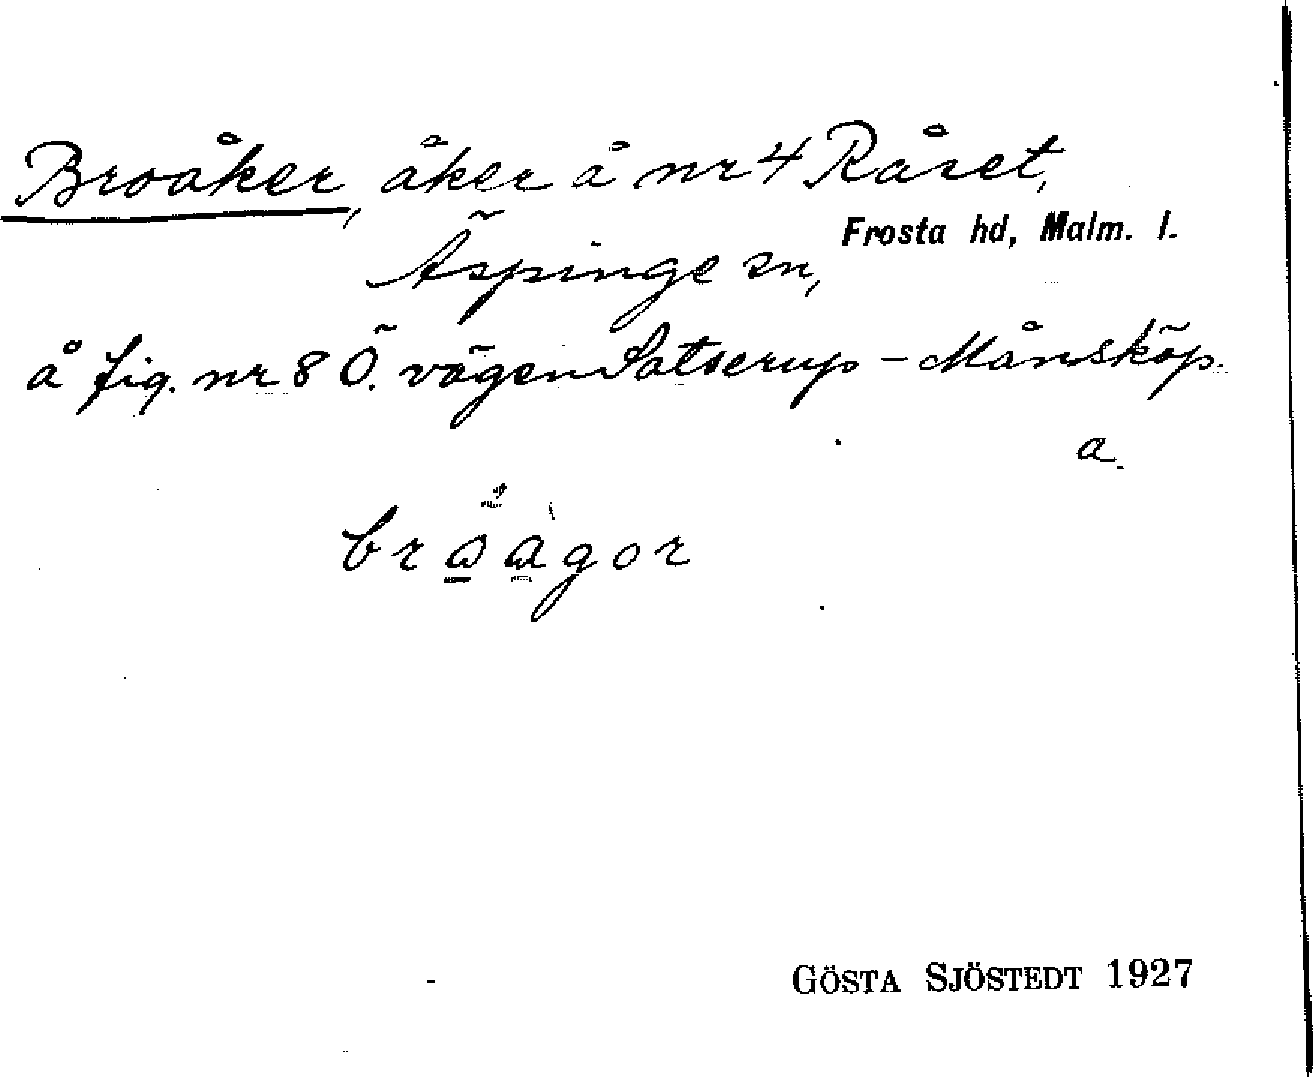 Broåker, åker å nr 4 Råset,
Äspinge sn, Frosta hd, Malm. l.
å fig. nr 8 Ö. vägen Satserup - Månsköp.
a.
GÖSTA SJÖSTEDT 1927